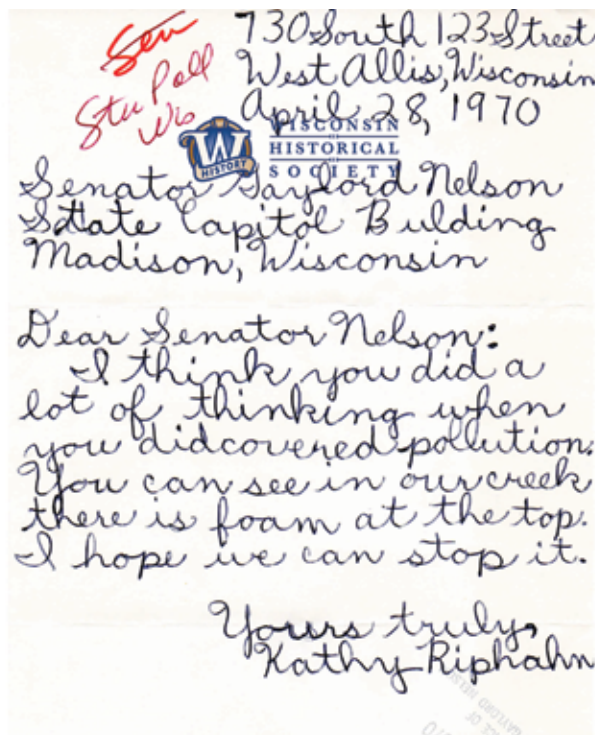 Sen
Stu Poll
Wis
730 South 123 Street
West Allis, Wisconsin
April 28, 1970
W
HISTORY
WISCONSIN
HISTORICAL
SOCIETY
Senator Gaylord Nelson
State Capitol Bulding
Madison, Wisconsin
Dear Senator Nelson:
I think you did a
lot of thinking when
you didcovered pollution.
You can see in our creek
there is foam at the top.
I hope we can stop it.
Yours truly,
Kathy Riphahn
GAYLORD NELS
CE OF
70